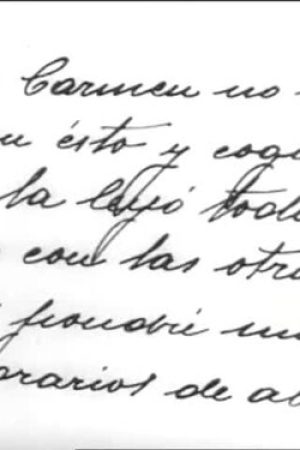 Carmen no
ésto y cogi
la leyó toda
con las otra
pondré un
orarios de al